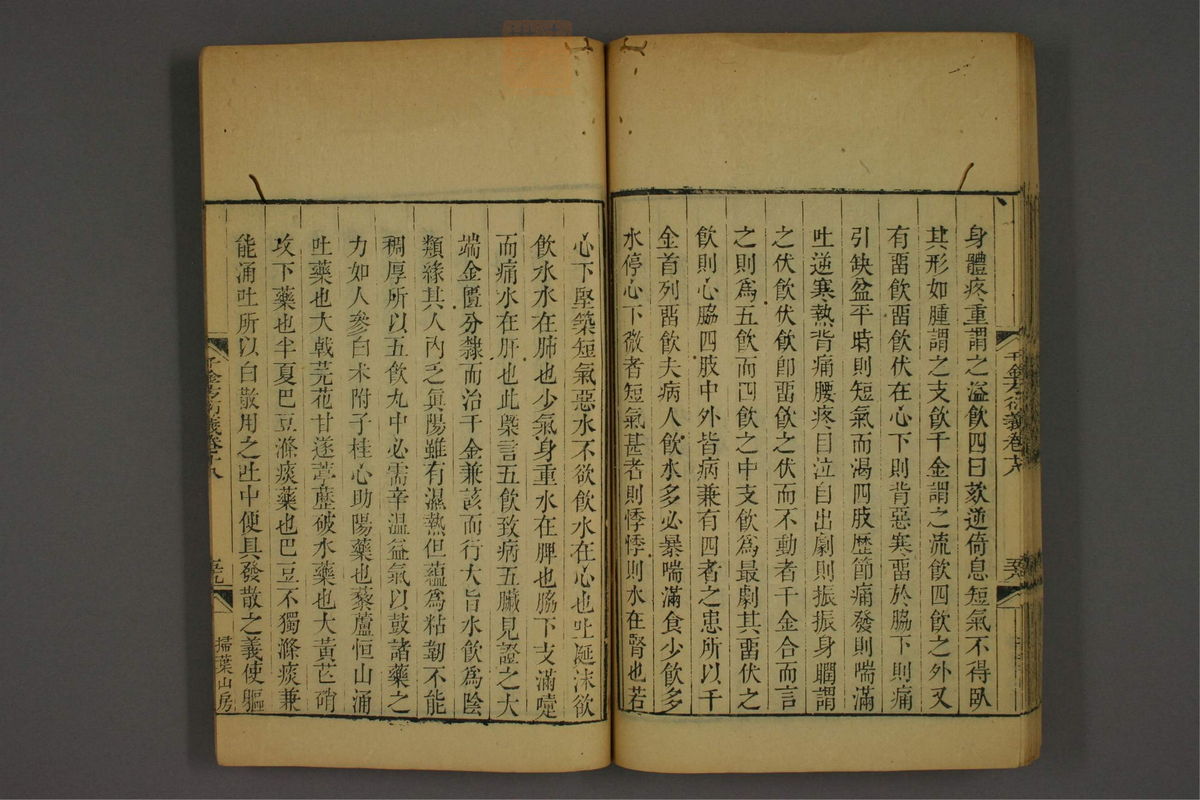 身體疼重謂之溢飲四曰欬逆倚息短氣不得臥
其形如腫謂之支飲千金謂之流飲四飲之外又
有畱飲畱飲伏在心下則背惡寒畱於脇下則痛
引缺盆平時則短氣而渴四肢歷節痛發則喘滿
吐逆寒熱背痛腰疼目泣自出劇則振振身瞤謂
之伏飲伏飲卽畱飲之伏而不動者千金合而言
之則爲五飲而四飲之中支飲爲最劇其畱伏之
飲則心脇四肢中外皆病兼有四者之患所以千
金首列畱飲夫病人飲水多必暴喘滿食少飲多
水停心下微者短氣甚者則悸悸則水在腎也若
心下堅築短氣惡水不欲飲水在心也吐涎沫欲
飲水水在肺也少氣身重水在脾也脇下支滿嚏
而痛水在肝也此槩言五飲致病五臟見證之大
端金匱分隸而治千金兼該而行大旨水飲爲陰
類緣其人內乏眞陽雖有濕熱但蘊爲粘韌不能
稠厚所以五飲丸中必需辛温益氣以鼓諸藥之
力如人參白朮附子桂心助陽藥也藜蘆恒山涌
吐藥也大戟芫花甘遂葶藶破水藥也大黃芒硝
攻下藥也半夏巴豆滌痰藥也巴豆不獨滌痰兼
能涌吐所以白散用之吐中便具發散之義使軀
千金方衍義卷十八
掃葉山房